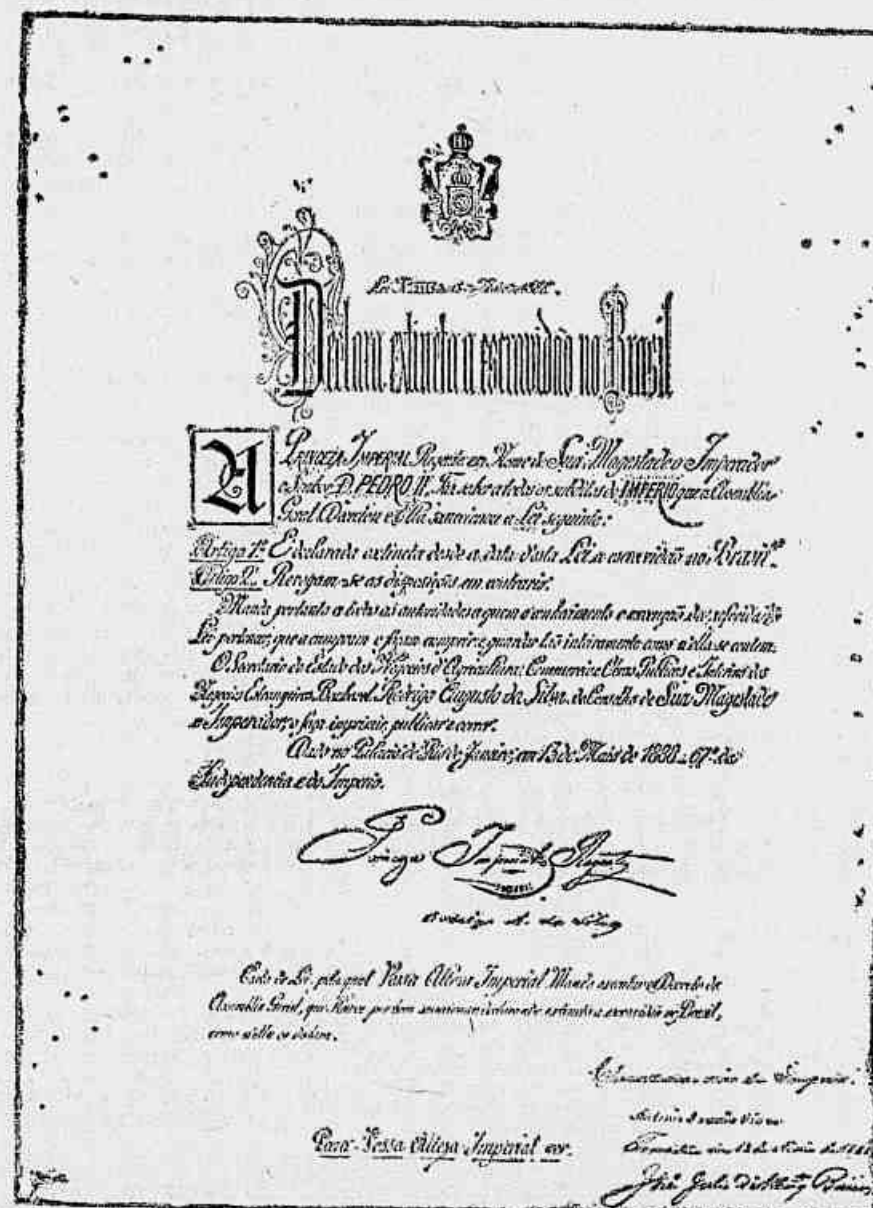 Declara extincta a escravidão no Brasil
A PRINCEZA IMPERIAL Regente em Nome de Sua Magestade o Imperador
o Senhor D. PEDRO II, Faz saber a todos os subditos do IMPERIO que a Assembléa
Geral Decretou e Ella sanccionou a Lei seguinte:
Artigo 1º: É declarada extincta desde a data d'esta Lei a escravidão no Brazil.
Artigo 2º: Revogam-se as disposições em contrario.
Manda portanto a todas as autoridades a quem o conhecimento e execução da referida
Lei pertencer, que a cumpram e façam cumprir e guardar tão inteiramente como n'ella se contem.
O Secretario de Estado dos Negocios d'Agricultura, Commercio e Obras Publicas e Interino dos
Negocios Estrangeiros Bacharel Rodrigo Augusto da Silva, do Conselho de Sua Magestade
o Imperador, o faça imprimir, publicar e correr.
Dado no Palacio do Rio de Janeiro, em 13 de Maio de 1888 – 67º da
Independencia e do Imperio.
Princeza Imperial Regente
Rodrigo A. da Silva
Carta de Lei, pela qual Vossa Alteza Imperial Manda executar o Decreto da
Assembléa Geral, que Houve por bem sanccionar declarando extincta a escravidão no Brazil,
como n'elle se declara.
Para Vossa Alteza Imperial ver.